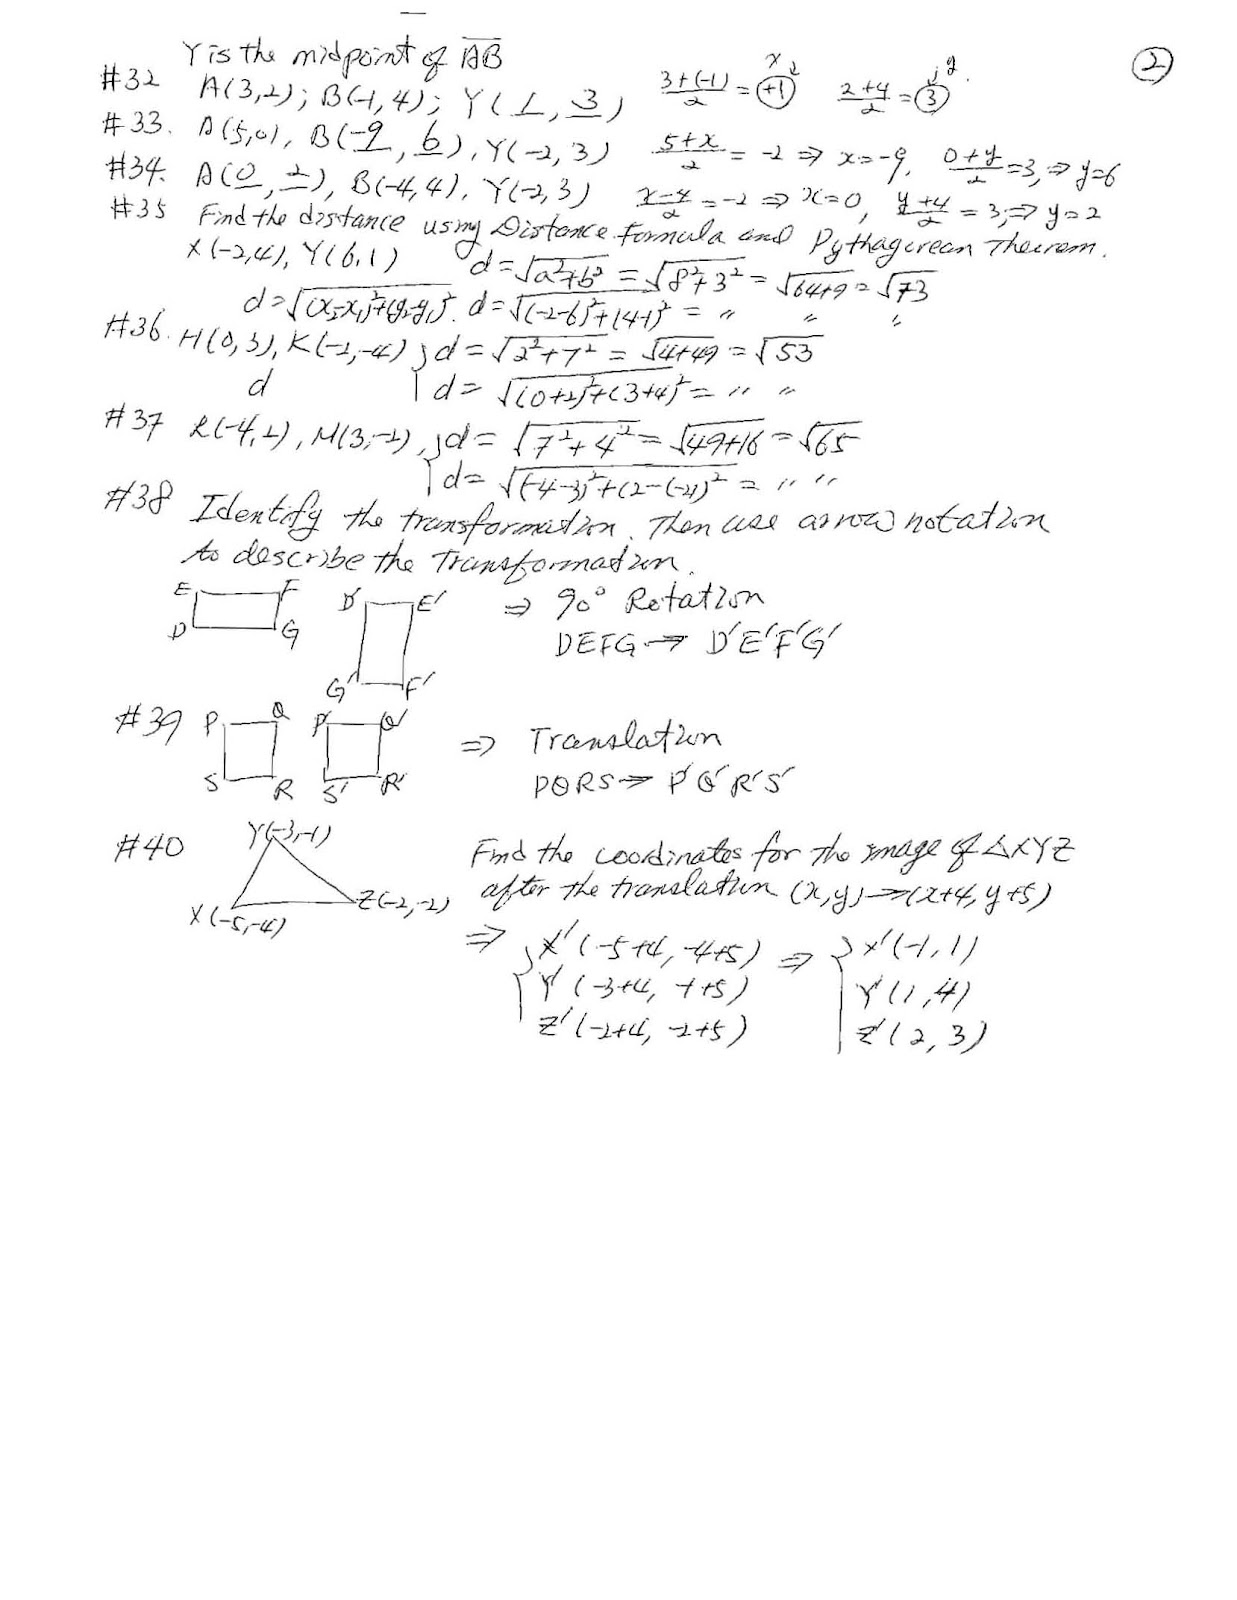 ②
Y is the midpoint of A̅B̅
#32 A(3,2); B(-1,4); Y(1, 3) (3+(-1))/2 = +1 x (2+4)/2 = 3 y.
#33. A(5,0), B(-9, 6), Y(-2,3) (5+x)/2 = -2 ⇒ x=-9, (0+y)/2=3, ⇒ y=6
#34. A(0, 2), B(-4,4), Y(-2,3) (x-4)/2 = -2 ⇒ x=0, (y+4)/2 = 3, ⇒ y=2
#35 Find the distance using Distance formula and Pythagorean Theorem.
X(-2,4), Y(6,1) d=√(a²+b²) = √(8²+3²) = √(64+9) = √73
d=√((x₂-x₁)²+(y₂-y₁)². d=√((-2-6)²+(4-1)² = " " "
#36. H(0,3), K(-2,-4) { d=√(2²+7²) = √(4+49) = √53
d d= √((0+2)²+(3+4)² = " "
#37 L(-4,2), M(3,-2), { d= √(7²+4²) = √(49+16) = √65
d= √((-4-3)²+(2-(-2))² = " "
#38 Identify the transformation. Then use arrow notation
to describe the Transformation.
E F D' E' ⇒ 90° Rotation
D G DEFG → D'E'F'G'
G' F'
#39 P Q P' Q' ⇒ Translation
S R S' R' PQRS → P'Q'R'S'
#40 Y(-3,-1) Find the coordinates for the image of △XYZ
X(-5,-4) Z(-2,-2) after the translation (x,y)→(x+4, y+5)
⇒ { X'(-5+4, -4+5) ⇒ { X'(-1,1)
Y'(-3+4, -1+5) Y'(1,4)
Z'(-2+4, -2+5) Z'(2,3)